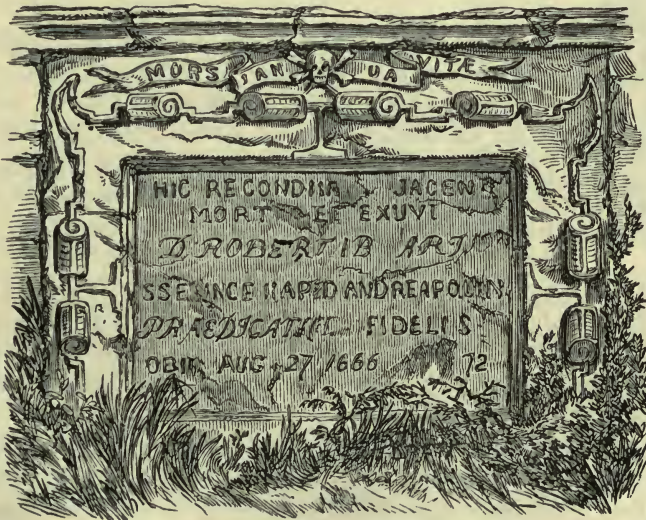 MORS JAN UA VITE
HIC RECONDITA JACENT
MORT EE EXUVI
D ROBERTI B AR
SSE INCE RAPED ANDREAPOLIN
PRAEDICATOR FIDELIS
OBIIT AUG 27 1666 72